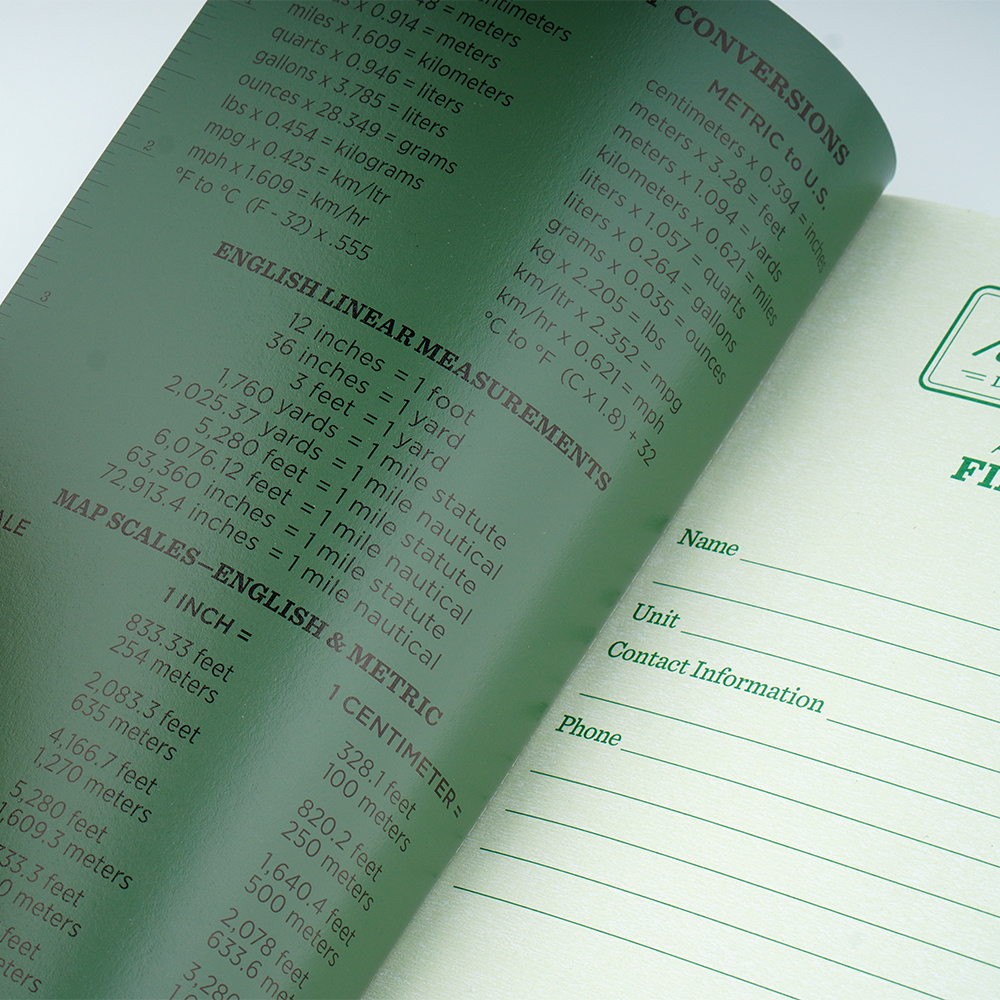 1
2
3
CONVERSIONS
= centimeters
x 0.914 = meters
miles x 1.609 = kilometers
quarts x 0.946 = liters
gallons x 3.785 = liters
ounces x 28.349 = grams
lbs x 0.454 = kilograms
mpg x 0.425 = km/ltr
mph x 1.609 = km/hr
°F to °C (F - 32) x .555
METRIC to U.S.
centimeters x 0.394 = inches
meters x 3.28 = feet
meters x 1.094 = yards
kilometers x 0.621 = miles
liters x 1.057 = quarts
liters x 0.264 = gallons
grams x 0.035 = ounces
kg x 2.205 = lbs
km/ltr x 2.352 = mpg
km/hr x 0.621 = mph
°C to °F (C x 1.8) + 32
ENGLISH LINEAR MEASUREMENTS
12 inches = 1 foot
36 inches = 1 yard
3 feet = 1 yard
1,760 yards = 1 mile statute
2,025.37 yards = 1 mile nautical
5,280 feet = 1 mile statute
6,076.12 feet = 1 mile nautical
63,360 inches = 1 mile statute
72,913.4 inches = 1 mile nautical
MAP SCALES—ENGLISH & METRIC
1 INCH =
833.33 feet
254 meters
2,083.3 feet
635 meters
4,166.7 feet
1,270 meters
5,280 feet
1,609.3 meters
33.3 feet
0 meters
feet
1 CENTIMETER =
328.1 feet
100 meters
820.2 feet
250 meters
1,640.4 feet
500 meters
2,078 feet
633.6 meters
3,280
Name
Unit
Contact Information
Phone